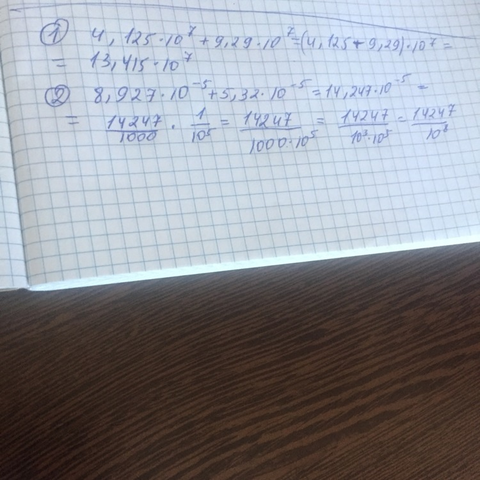 ① 4,125·10⁷+9,29·10⁷=(4,125+9,29)·10⁷=
= 13,415·10⁷
② 8,927·10⁻⁵+5,32·10⁻⁵=14,247·10⁻⁵=
= 14247/1000 · 1/10⁵ = 14247/1000·10⁵ = 14247/10³·10⁵ = 14247/10⁸